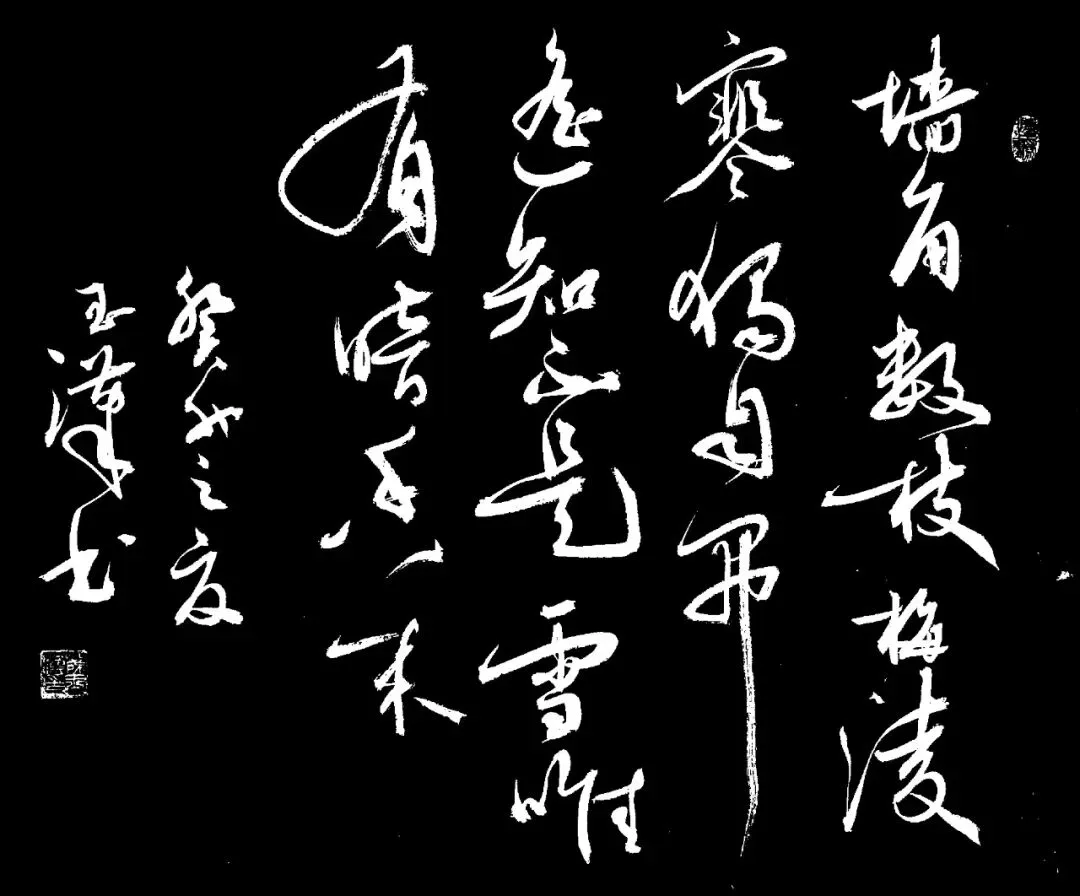 墙角数枝梅淩
寒獨自開
遥知不是雪唯
有暗香来
癸卯之夏
玉漢书